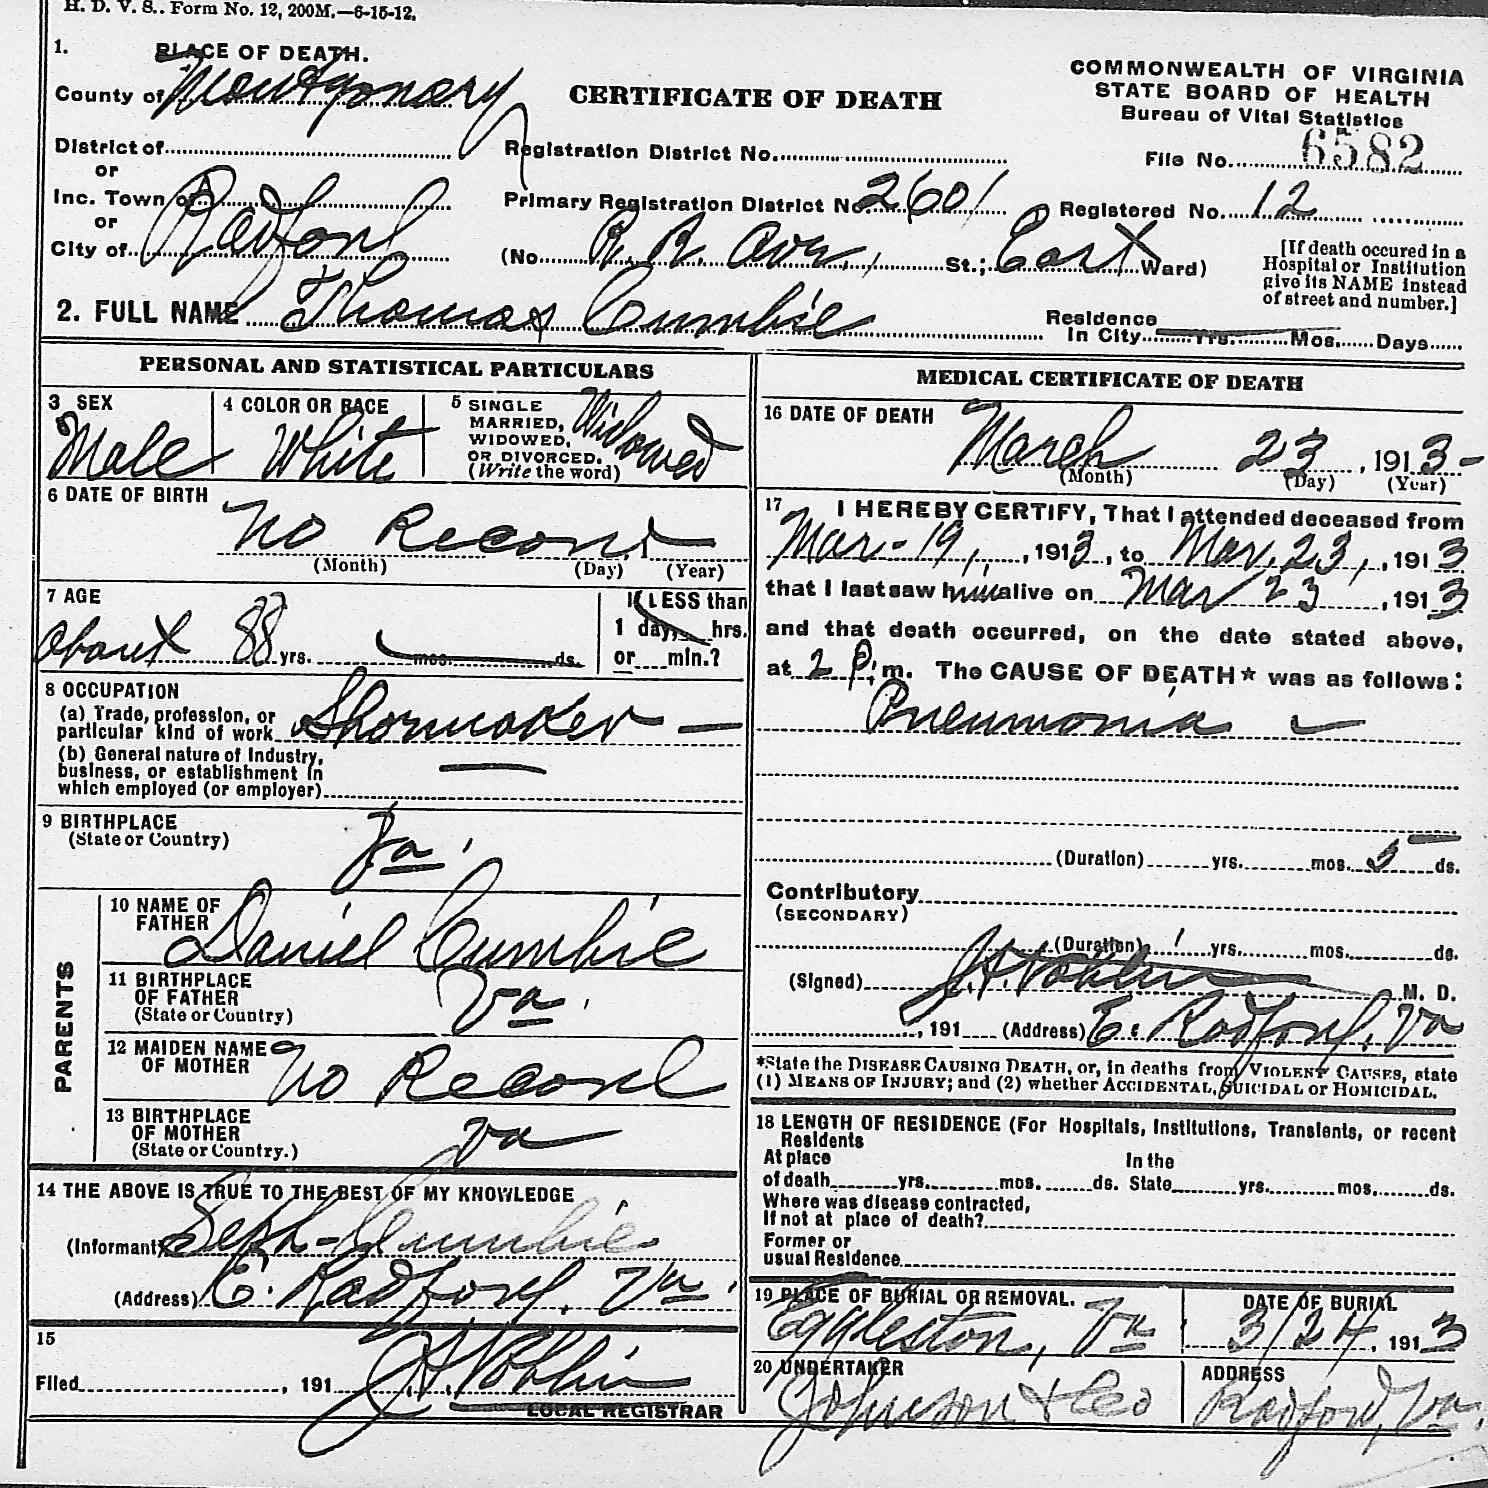 H. D. V. S.. Form No. 12, 200M.—6-15-12.
1. PLACE OF DEATH.
County of Montgomery
CERTIFICATE OF DEATH
COMMONWEALTH OF VIRGINIA
STATE BOARD OF HEALTH
Bureau of Vital Statistics
District of
Registration District No.
File No. 6582
or
Inc. Town of Radford
Primary Registration District No. 2601
Registered No. 12
or
City of
(No R. R. Ave, St.; East Ward)
[If death occured in a
Hospital or Institution
give its NAME instead
of street and number.]
2. FULL NAME Thomas Cumbie
Residence
In City Yrs. Mos. Days
PERSONAL AND STATISTICAL PARTICULARS
3 SEX
Male
4 COLOR OR RACE
White
5 SINGLE
MARRIED,
WIDOWED,
OR DIVORCED.
(Write the word)
Widowed
6 DATE OF BIRTH
No Record
(Month) (Day) (Year)
7 AGE
about 88 yrs. mos. ds.
If LESS than
1 day, hrs.
or min.?
8 OCCUPATION
(a) Trade, profession, or
particular kind of work Shoemaker —
(b) General nature of Industry,
business, or establishment in
which employed (or employer) —
9 BIRTHPLACE
(State or Country)
Va.
PARENTS
10 NAME OF
FATHER
Daniel Cumbie
11 BIRTHPLACE
OF FATHER
(State or Country)
Va.
12 MAIDEN NAME
OF MOTHER
No Record
13 BIRTHPLACE
OF MOTHER
(State or Country.)
Va
14 THE ABOVE IS TRUE TO THE BEST OF MY KNOWLEDGE
(Informant) Seph Cumbie
(Address) E. Radford, Va.
15
Filed , 191
LOCAL REGISTRAR
MEDICAL CERTIFICATE OF DEATH
16 DATE OF DEATH
March 23, 1913-
(Month) (Day) (Year)
17 I HEREBY CERTIFY, That I attended deceased from
Mar - 19, , 1913, to Mar. 23, , 1913
that I last saw him alive on Mar 23 , 1913
and that death occurred, on the date stated above,
at 2 P. m. The CAUSE OF DEATH* was as follows:
Pneumonia
(Duration) yrs. mos. 5 ds.
Contributory
(SECONDARY)
(Duration) yrs. mos. ds.
(Signed) M. D.
, 191 (Address) E. Radford, Va
*State the DISEASE CAUSING DEATH, or, in deaths from VIOLENT CAUSES, state
(1) MEANS OF INJURY; and (2) whether ACCIDENTAL, SUICIDAL or HOMICIDAL.
18 LENGTH OF RESIDENCE (For Hospitals, Institutions, Transients, or recent
Residents
At place In the
of death yrs. mos. ds. State yrs. mos. ds.
Where was disease contracted,
If not at place of death?
Former or
usual Residence
19 PLACE OF BURIAL OR REMOVAL.
Eggleston, Va
DATE OF BURIAL
3/24, 1913
20 UNDERTAKER
Johnson & Co
ADDRESS
Radford, Va.